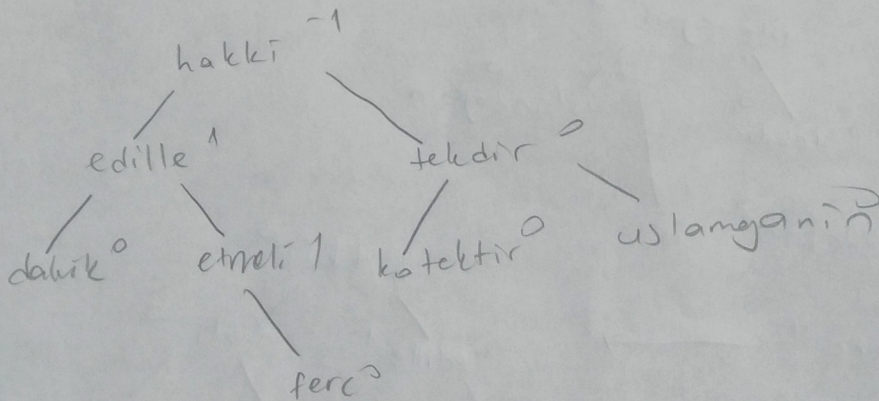 hakki -1
edille 1 tekdir 0
dahik 0 etmeli 1 kotektir 0 uslamganin 0
ferc 0